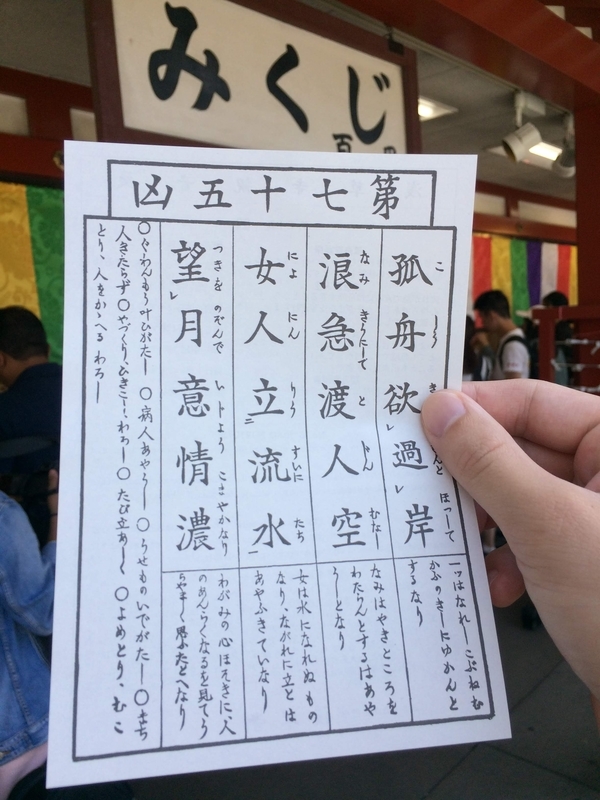 みくじ
百
第七十五凶
孤舟欲過岸
浪急渡人空
女人立流水
望月意情濃
こ しう ほつして
なみ きうにーて と じん むなー
によ にん りう すいに たち
つきを のぞんで い トよう こまやかなり
一ツはなれーこぶねむ
かふのきーにゆかんと
するなり
なみはやきところを
わたらんとするはあや
うーとなり
女は水になれぬもの
なり、ながれに立とは
あやふきていなり
わがみの心ほそきに、人
のあんらくなるを見てう
らやまーく思ふたとへなり
〇ぐわんもう叶ひがたー 〇病人あやうー 〇うせものいでがたー 〇まち
人きたらず 〇やづくり、ひきこー、わろー 〇たび立あーく 〇よめとり、むこ
とり、人をかゝへる わろー